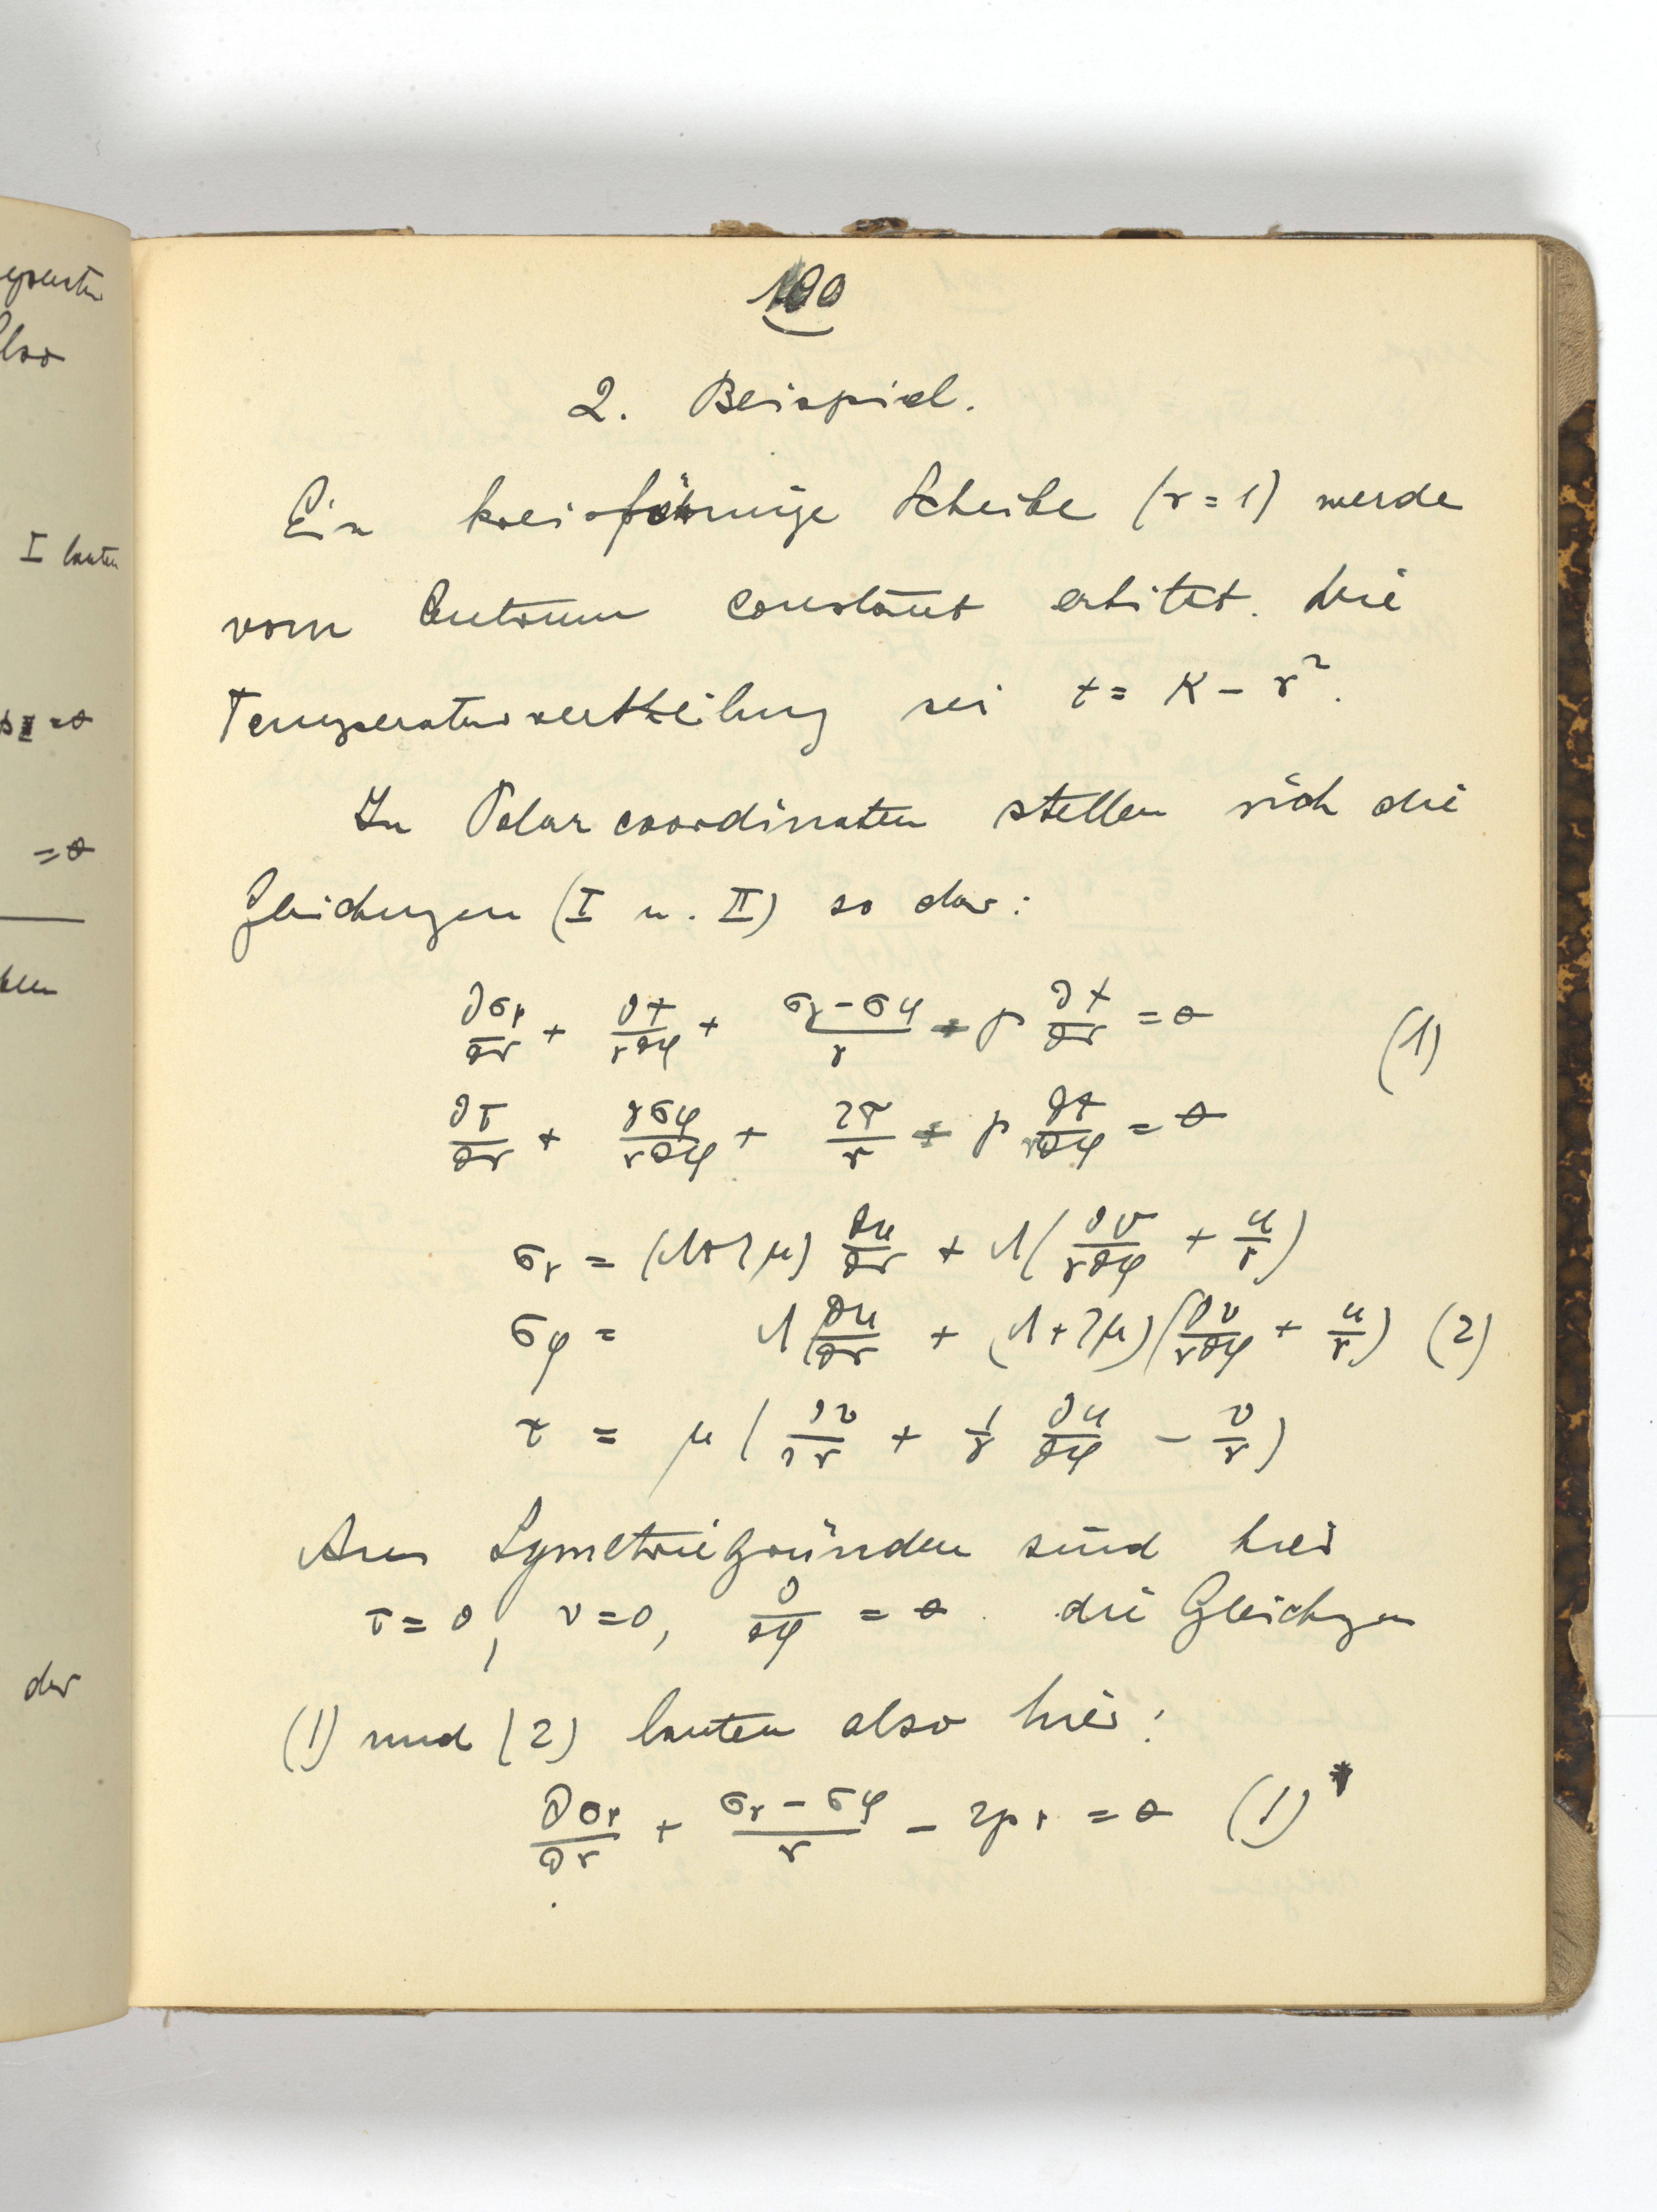 100
2. Beispiel.
Ein kreisförmige Scheibe (r = 1) werde
vom Centrum constant erhitzt. Die
Temperaturvertheilung sei t = K − r².
In Polarcoordinaten stellen sich die
Gleichungen (I u. II) so dar:
∂σr/∂r + ∂τ/r∂φ + (σr − σφ)/r + p ∂t/∂r = 0 (1)
∂τ/∂r + ∂σφ/r∂φ + 2τ/r + p ∂t/r∂φ = 0
σr = (λ+2μ) ∂u/∂r + λ(∂v/r∂φ + u/r)
σφ = λ ∂u/∂r + (λ+2μ)(∂v/r∂φ + u/r) (2)
τ = μ(∂v/∂r + 1/r ∂u/∂φ − v/r)
Aus Symetriegründen sind hier
τ = 0, v = 0, ∂/∂φ = 0. die Gleichgen
(1) und (2) lauten also hier:
∂σr/∂r + (σr − σφ)/r − 2pr = 0 (1)*
I lauten
= 0
= 0
der